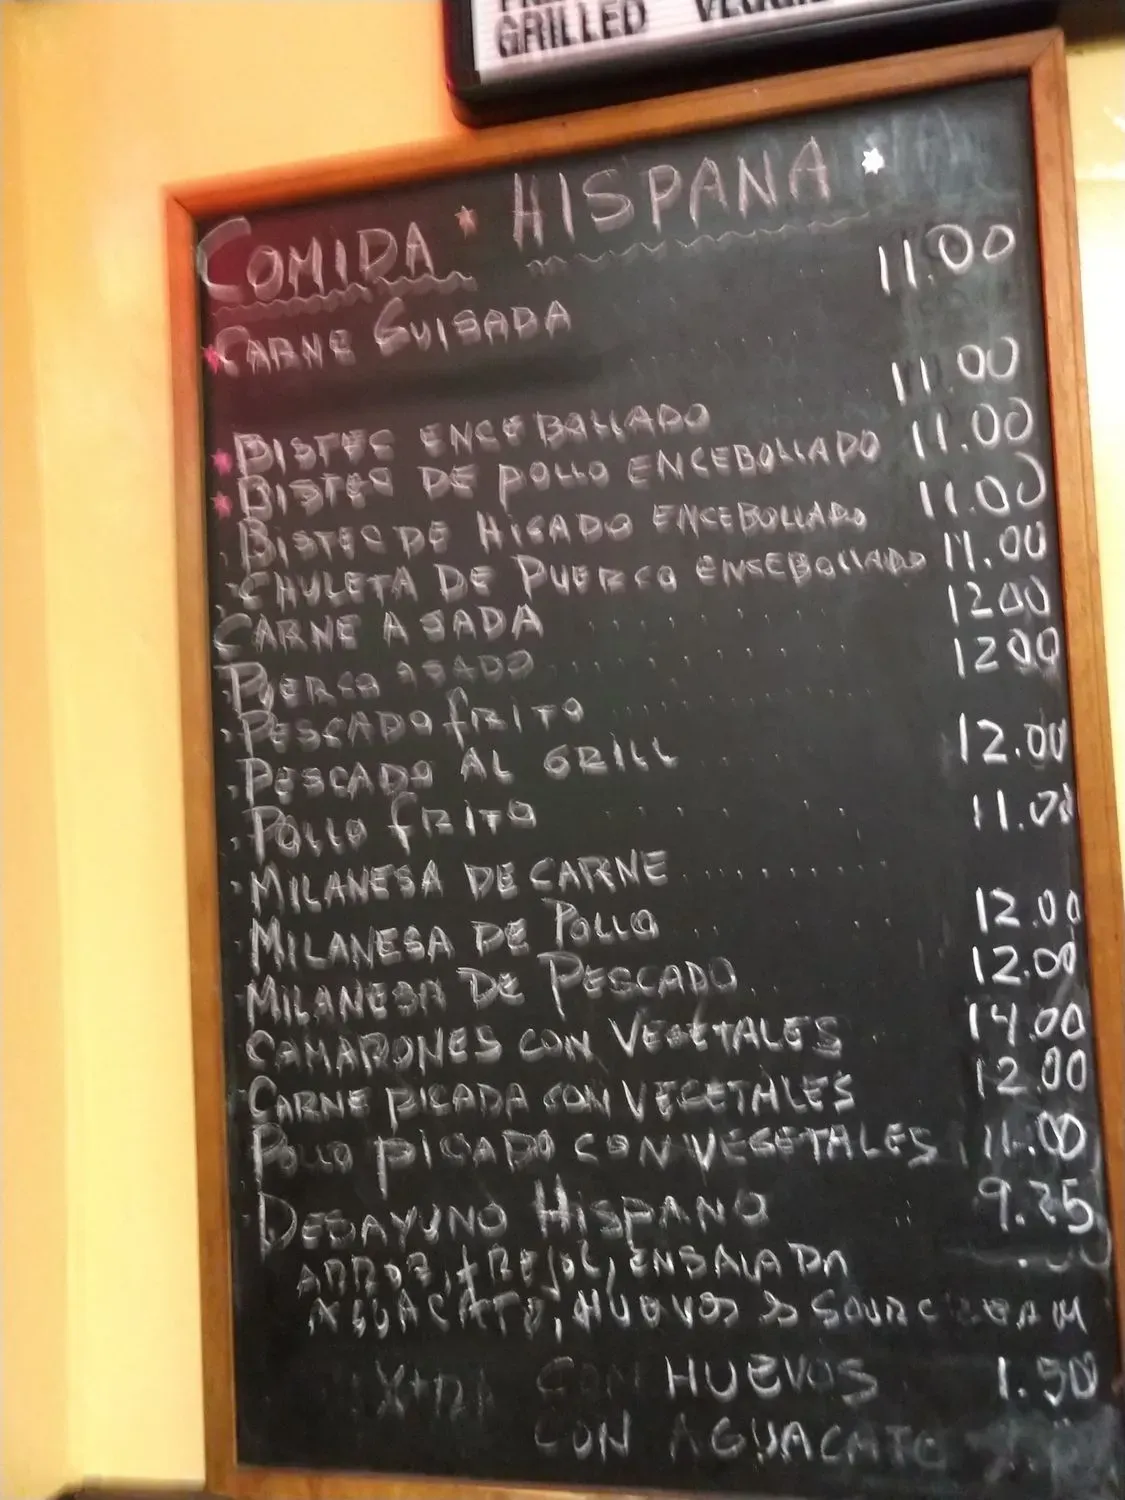 GRILLED
COMIDA * HISPANA *
11.00
* CARNE GUISADA
11.00
* BISTEC ENCEBOLLADO 11.00
* BISTEC DE POLLO ENCEBOLLADO 11.00
BISTEC DE HIGADO ENCEBOLLADO 11.00
CHULETA DE PUERCO ENSEBOLLADO 1200
CARNE ASADA 1200
PUERCO ASADO
PESCADO FRITO 12.00
PESCADO AL GRILL 11.00
POLLO FRITO
MILANESA DE CARNE 12.00
MILANESA DE POLLO 12.00
MILANESA DE PESCADO 14.00
CAMARONES CON VEGETALES 12.00
CARNE PICADA CON VEGETALES 11.00
POLLO PICADO CON VEGETALES 9.25
DESAYUNO HISPANO
ARROZ, FREJOL, ENSALADA
AGUACATO, HUEVOS
CON HUEVOS 1.50
CON AGUACATE